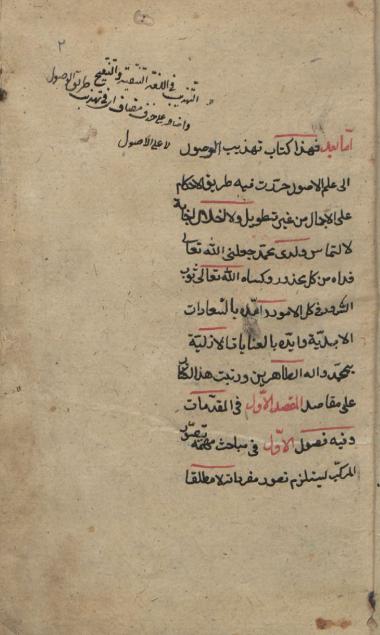 ٢
التهذيب فى اللغة التنقية والتنقيح طريق الوصول
على حذف مضاف اى فى تهذيب
الاصول
اما بعد فهذا كتاب تهذيب الوصول
الى علم الاصول حررت فيه طريق الاحكام
على الاجمال من غير تطويل ولا اخلال اجابة
لالتماس ولدى محمد جعلنى الله تعالى
فداه من كل محذور وكساه الله تعالى ثوب
السرور فى كل الامور وامده بالسعادات
الابدية وايده بالعنايات الازلية
بمحمد واله الطاهرين ورتبت هذا الكتاب
على مقاصد المقصد الاول فى المقدمات
وفيه فصول الاول فى مباحث مهمة تصور
المركب يستلزم تصور مفرداته لا مطلقا